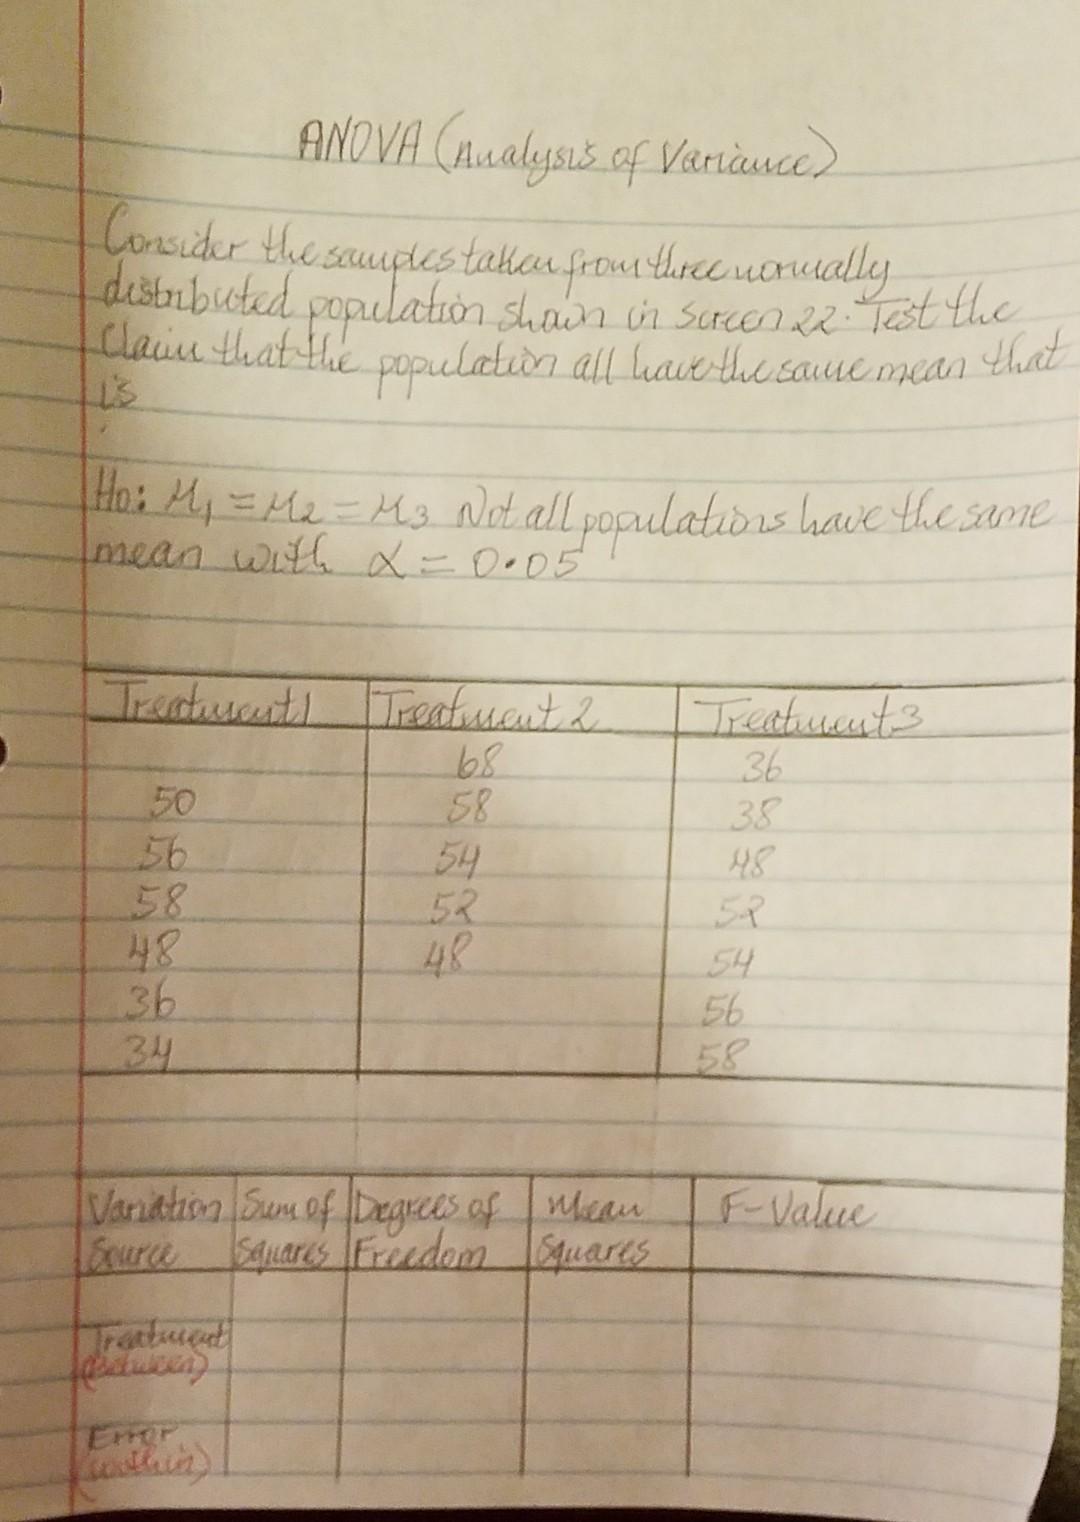 ANOVA (Analysis of Variance)
Consider the samples taken from three normally
distributed population shown in Screen 22. Test the
Claim that the population all have the same mean that
is
Ho: μ1 = μ2 = μ3 Not all populations have the same
mean with α = 0.05
Treatment 1 Treatment 2 Treatment 3
68 36
50 58 38
56 54 48
58 52 52
48 48 54
36 56
34 58
Variation Sum of Degrees of Mean F-Value
Source Squares Freedom Squares
Treatment
(Between)
Error
(within)